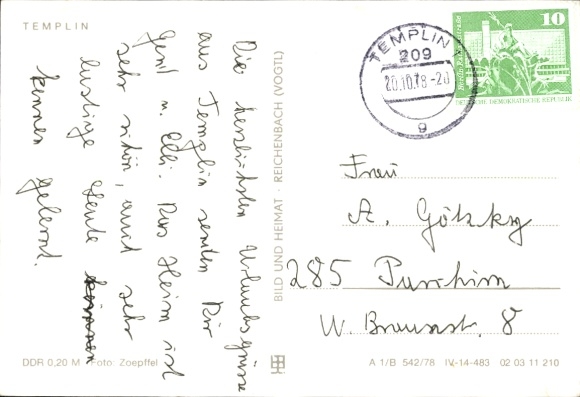 TEMPLIN
Die herzlichsten Urlaubsgrüsse
aus Templin senden Dir
Gerd u. Elli. Das Heim ist
sehr schön, auch sehr
lustige Leute
kennen gelernt.
BILD UND HEIMAT · REICHENBACH (VOGTL)
TEMPLIN 1
209
20.10.78-20
g
10
DEUTSCHE DEMOKRATISCHE REPUBLIK
Frau
A. Götzky
285 Parchim
W. Brauerstr. 8
DDR 0,20 M Foto: Zoepffel
A 1/B 542/78 IV-14-483 02 03 11 210